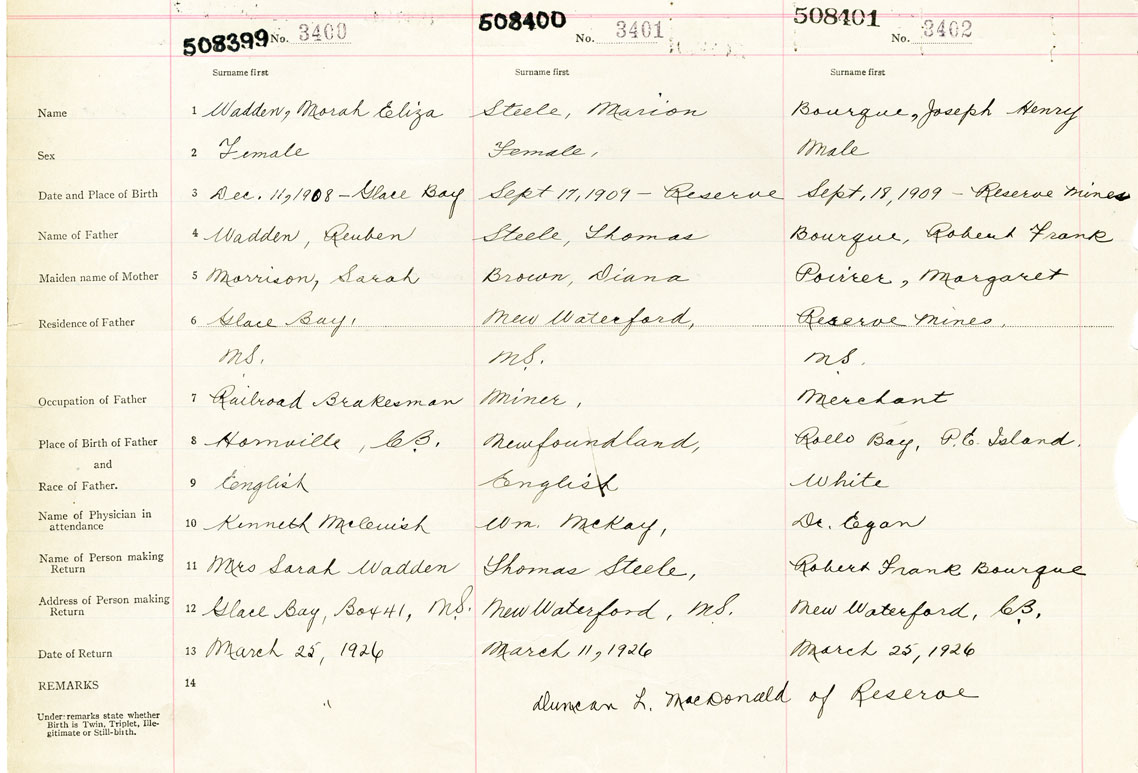 508399 No. 3400 508400 No. 3401 508401 No. 3402
Surname first Surname first Surname first
Name 1 Wadden, Norah Eliza Steele, Marion Bourque, Joseph Henry
Sex 2 Female Female, Male
Date and Place of Birth 3 Dec. 11, 1908 - Glace Bay Sept 17, 1909 - Reserve Sept. 18, 1909 - Reserve Mines
Name of Father 4 Wadden, Reuben Steele, Thomas Bourque, Robert Frank
Maiden name of Mother 5 Morrison, Sarah Brown, Diana Poirier, Margaret
Residence of Father 6 Glace Bay, New Waterford, Reserve Mines,
N.S. N.S. N.S.
Occupation of Father 7 Railroad Brakesman Miner, Merchant
Place of Birth of Father 8 Hornville, C.B. Newfoundland, Rollo Bay, P.E. Island.
and
Race of Father. 9 English English White
Name of Physician in
attendance 10 Kenneth Wm. McKay, Dr. Egan
Name of Person making
Return 11 Mrs Sarah Wadden Thomas Steele, Robert Frank Bourque
Address of Person making
Return 12 Glace Bay, Box 41, N.S. New Waterford, N.S. New Waterford, C.B.
Date of Return 13 March 25, 1926 March 11, 1926 March 25, 1926
REMARKS 14
" Duncan L. MacDonald of Reserve
Under remarks state whether
Birth is Twin, Triplet, Ille-
gitimate or Still-birth.